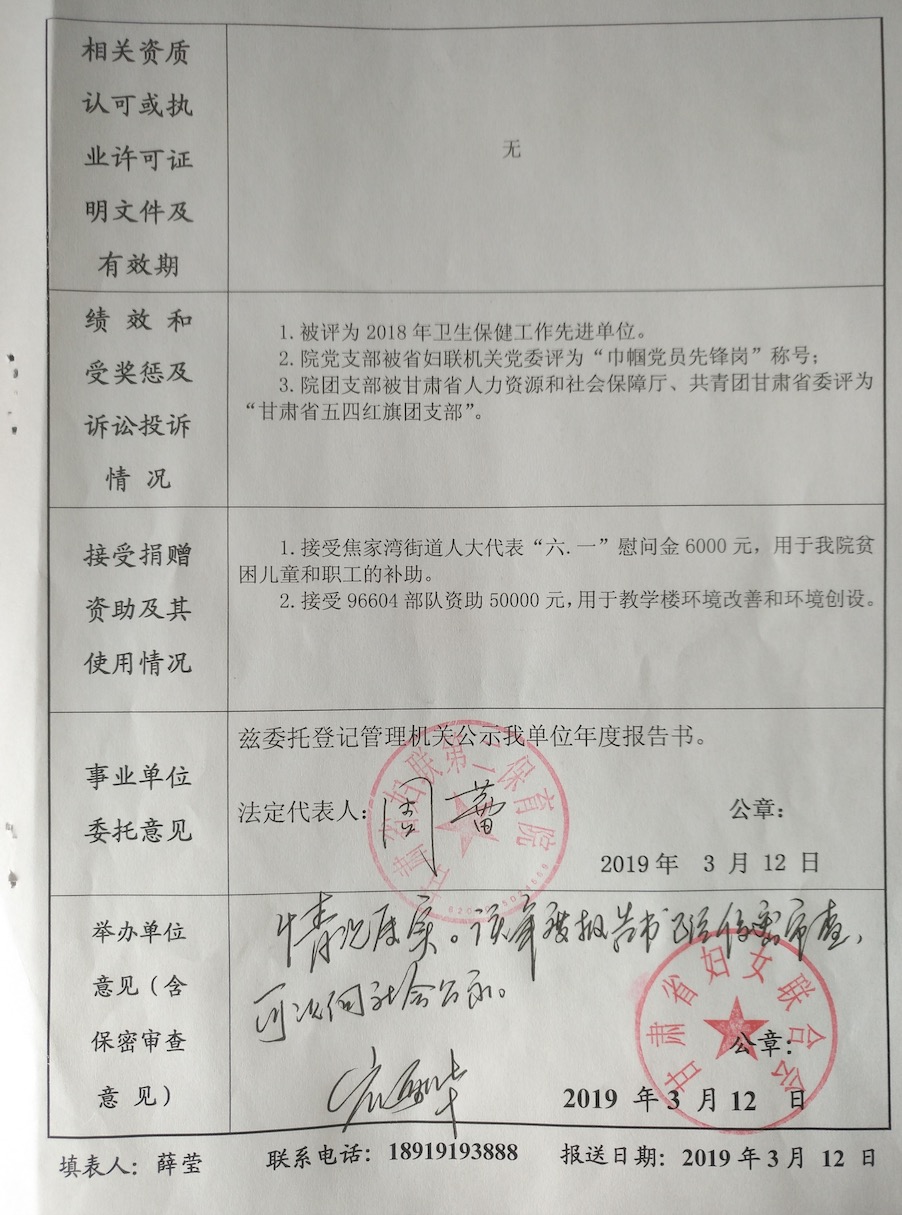 相关资质
认可或执
业许可证
明文件及
有效期
无
绩 效 和
受奖惩及
诉讼投诉
情 况
1.被评为 2018 年卫生保健工作先进单位。
2.院党支部被省妇联机关党委评为“巾帼党员先锋岗”称号；
3.院团支部被甘肃省人力资源和社会保障厅、共青团甘肃省委评为
“甘肃省五四红旗团支部”。
接受捐赠
资助及其
使用情况
1.接受焦家湾街道人大代表“六.一”慰问金 6000 元，用于我院贫
困儿童和职工的补助。
2.接受 96604 部队资助 50000 元，用于教学楼环境改善和环境创设。
事业单位
委托意见
兹委托登记管理机关公示我单位年度报告书。
法定代表人：周蕾
公章：
2019 年 3 月 12 日
甘肃省妇联第二保育院
举办单位
意见（含
保密审查
意 见）
情况属实。该年度报告书已经保密审查，
可以向社会公示。
甘肃省妇女联合会
公章：
2019 年 3 月 12 日
填表人：薛莹 联系电话：18919193888 报送日期：2019 年 3 月 12 日